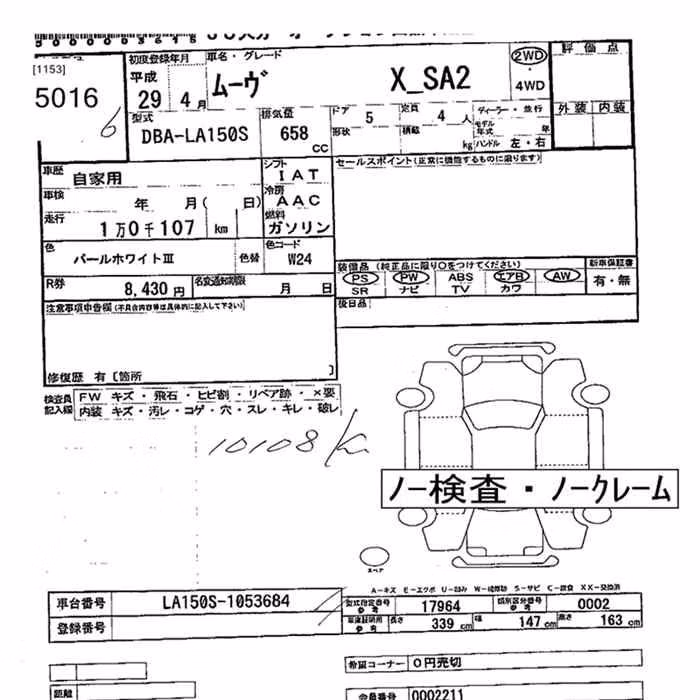 [1153]
5016
6
初度登録年月
平成
29 4月
車名・グレード
ムーヴ X_SA2
2WD
・
4WD
評価点
外装 内装
型式
DBA-LA150S
排気量
658
CC
ドア 5
形状
定員 4 人
積載 kg
ディーラー・並行
モデル年式 年
ハンドル 左・右
車歴
自家用
車検
年 月( 日)
走行
1万0千107 km
シフト
IAT
冷房
AAC
燃料
ガソリン
セールスポイント(正常に機能するものに限ります)
色
パールホワイトIII
色替
色コード
W24
R券
8,430 円
名変通知期限
月 日
装備品 (純正品に限り○をつけてください)
PS PW ABS エアB AW
SR ナビ TV カワ
新車保証書
有・無
後日品
注意事項申告欄(不具合内容等は具体的に記入して下さい)
修復歴 有 〔箇所 〕
検査員
記入欄
FW キズ・飛石・ヒビ割・リペア跡・×要
内装 キズ・汚レ・コゲ・穴・スレ・キレ・破レ
10108 K
ノー検査・ノークレーム
スペア
A-キズ E-エクボ U-凹み W-補修跡 S-サビ C-腐食 XX-交換済
車台番号 LA150S-1053684
登録番号
型式指定番号
参考
17964
類別区分番号
参考
0002
車庫証明用
参考
長さ 339 cm 幅 147 cm 高さ 163 cm
希望コーナー 0円売切
距離
会員番号 0002211